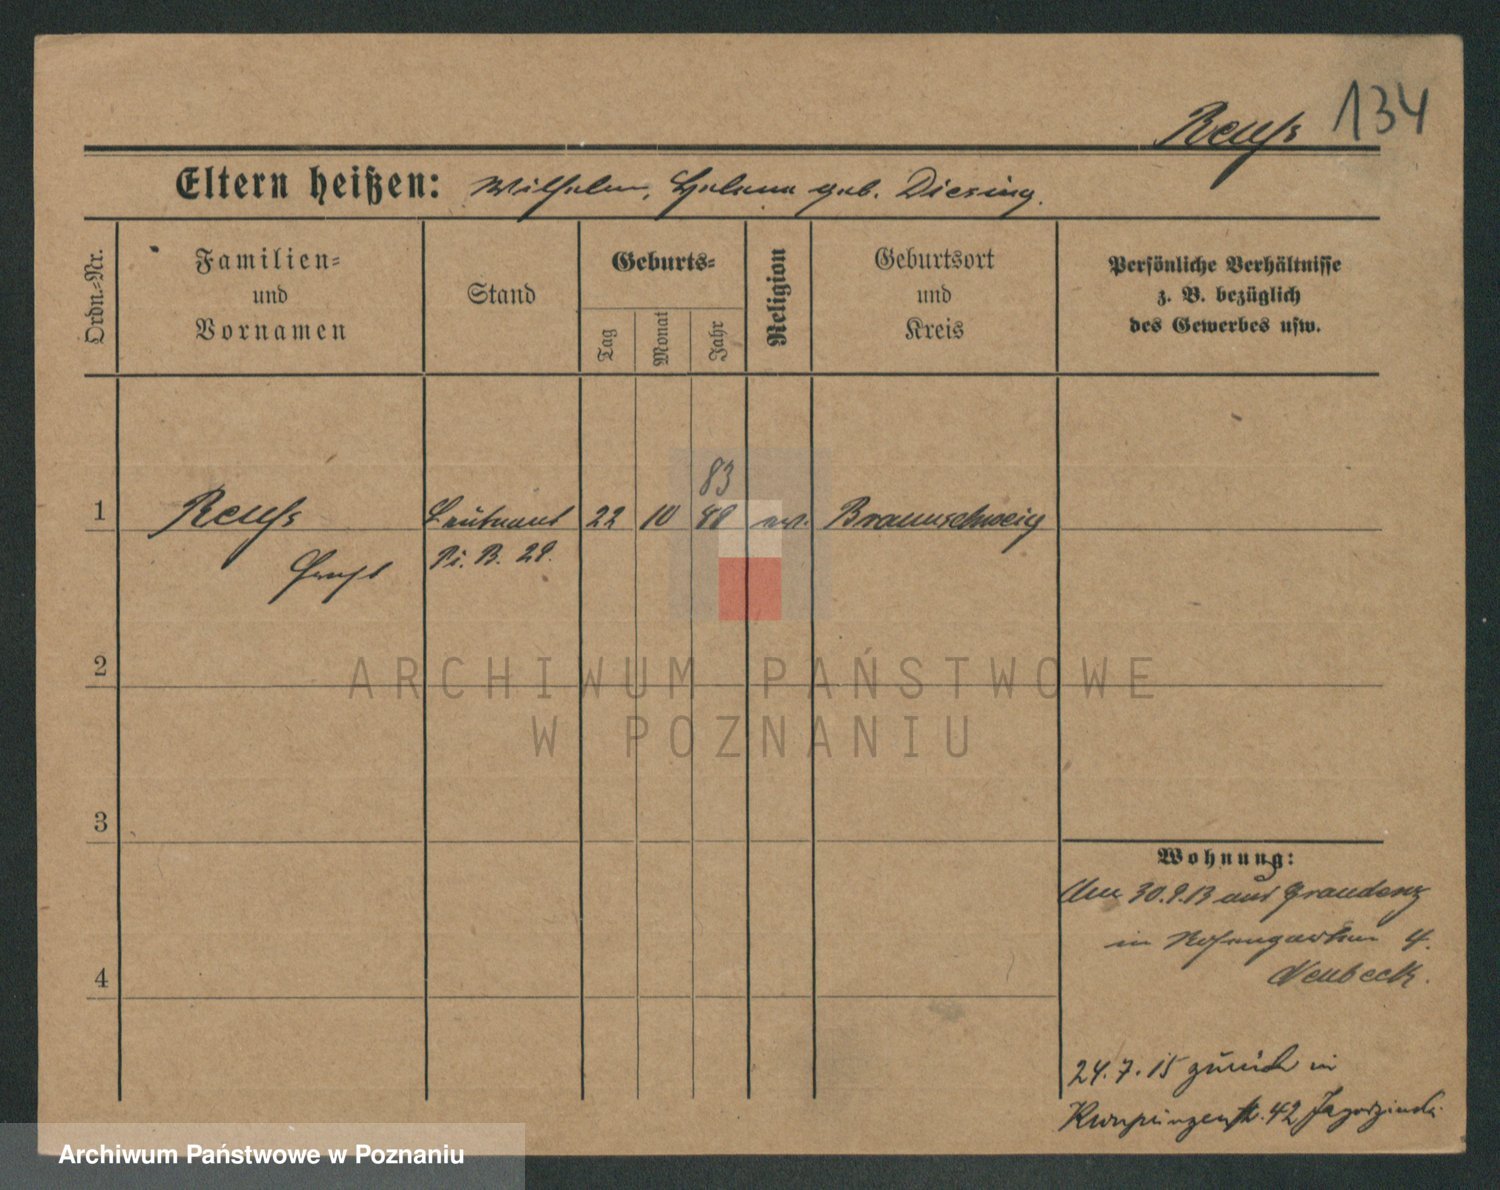 Reuß 134
Eltern heißen: Wilhelm, Helene geb. Diesing.
Ordn.-Nr.
Familien-
und
Vornamen
Stand
Geburts-
Tag
Monat
Jahr
Religion
Geburtsort
und
Kreis
Persönliche Verhältnisse
z. B. bezüglich
des Gewerbes usw.
83
1 Reuß Leutnant 22 10 48 ev. Braunschweig
Ernst Pi. B. 29.
2
3
4
Wohnung:
Am 30.9.13 aus Graudenz
in Rosengarten 4.
Neubeck.
24.7.15 zurück in
Kronprinzenstr. 42
ARCHIWUM PAŃSTWOWE
W POZNANIU
Archiwum Państwowe w Poznaniu